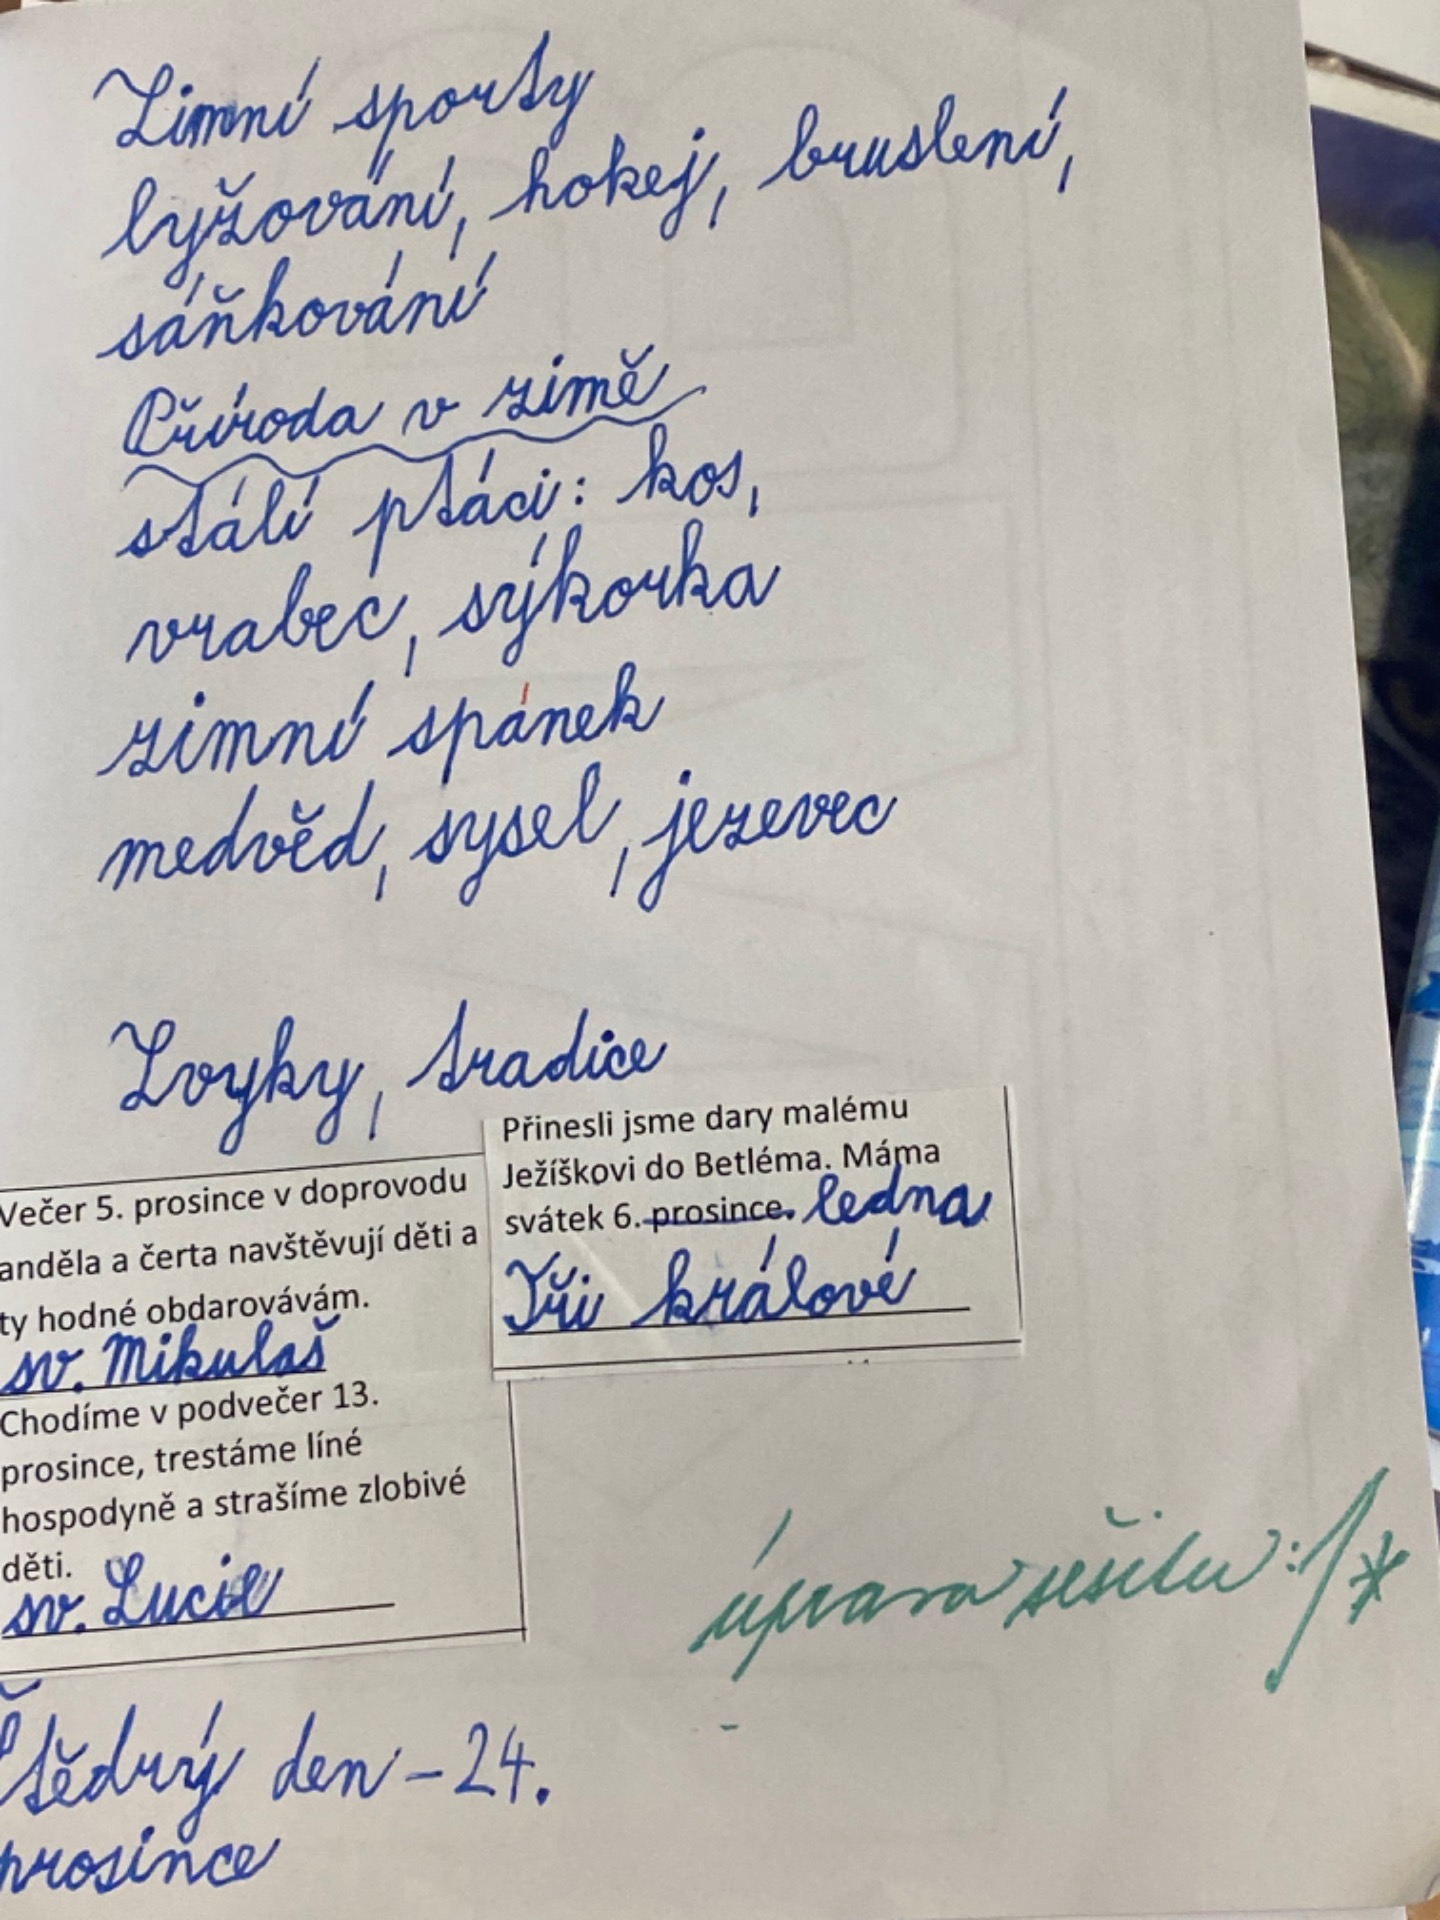 Zimní sporty
lyžování, hokej, bruslení,
sáňkování
Příroda v zimě
stálí ptáci: kos,
vrabec, sýkorka
zimní spánek
medvěd, sysel, jezevec
Zvyky, tradice
Večer 5. prosince v doprovodu
anděla a čerta navštěvují děti a
ty hodné obdarovávám.
sv. Mikulaš
Přinesli jsme dary malému
Ježíškovi do Betléma. Máma
svátek 6. prosince. ledna
Tři králové
Chodíme v podvečer 13.
prosince, trestáme líné
hospodyně a strašíme zlobivé
děti.
sv. Lucie
úprava sešitu: 1*
Štědrý den - 24.
prosince